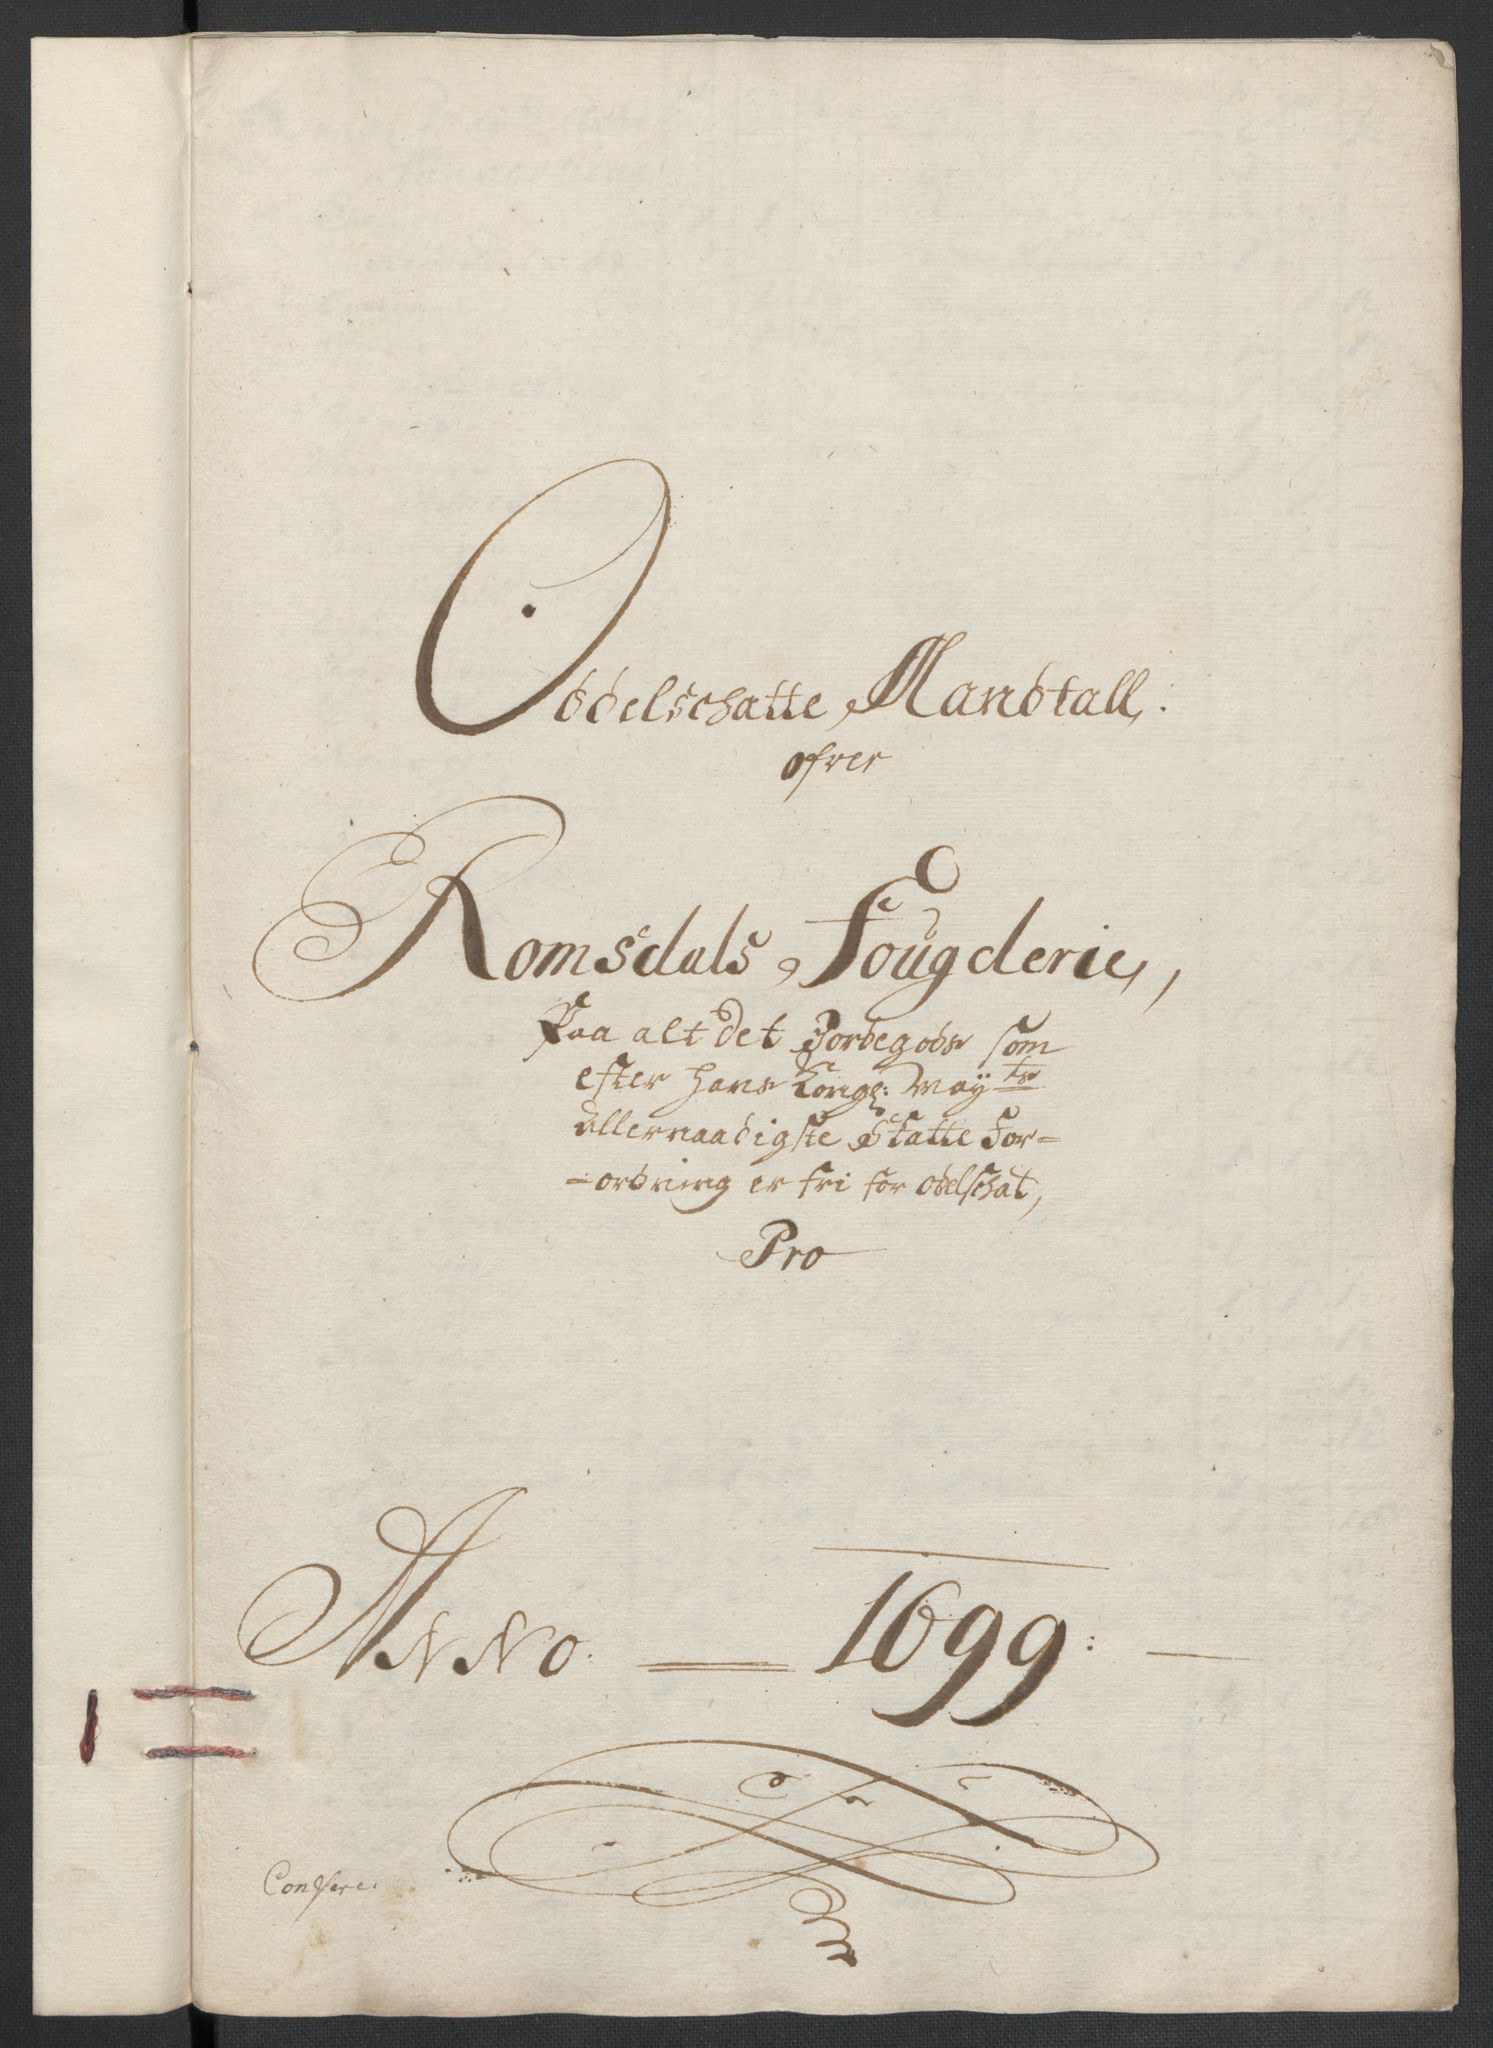 Oddelschatte Mandtall:
ofver
Romsdals Fougderie,
Paa alt det Jordegods som
efter hans Kongl: Mayts
allernaadigste Skatte For=
=ordning er fri for odelschat,
Pro
Anno. 1699:
Confere.